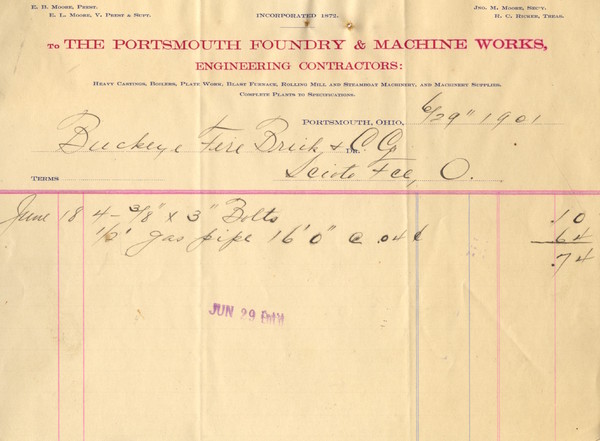 E. B. Moore, Prest.
E. L. Moore, V. Prest & Supt.
INCORPORATED 1872.
Jno. M. Moore, Sec'y.
R. C. Ricker, Treas.
To THE PORTSMOUTH FOUNDRY & MACHINE WORKS,
ENGINEERING CONTRACTORS:
Heavy Castings, Boilers, Plate Work, Blast Furnace, Rolling Mill and Steamboat Machinery, and Machinery Supplies.
Complete Plants to Specifications.
Portsmouth, Ohio, 6/29" 1901
Buckeye Fire Brick & C Co
Dr.
Scioto Fce, O.
Terms
June 18 4- 3/8" x 3" Bolts 10
1/2" gas pipe 16'0" @ .04¢ 64
.74
JUN 29